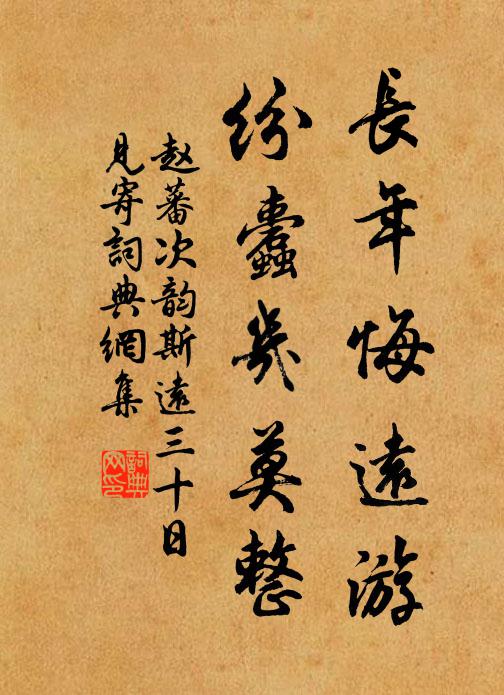 長年悔遠游
紛蠹几莫整
赵蕃次韵斯遠三十日
見寄詞典網集
詞典網印